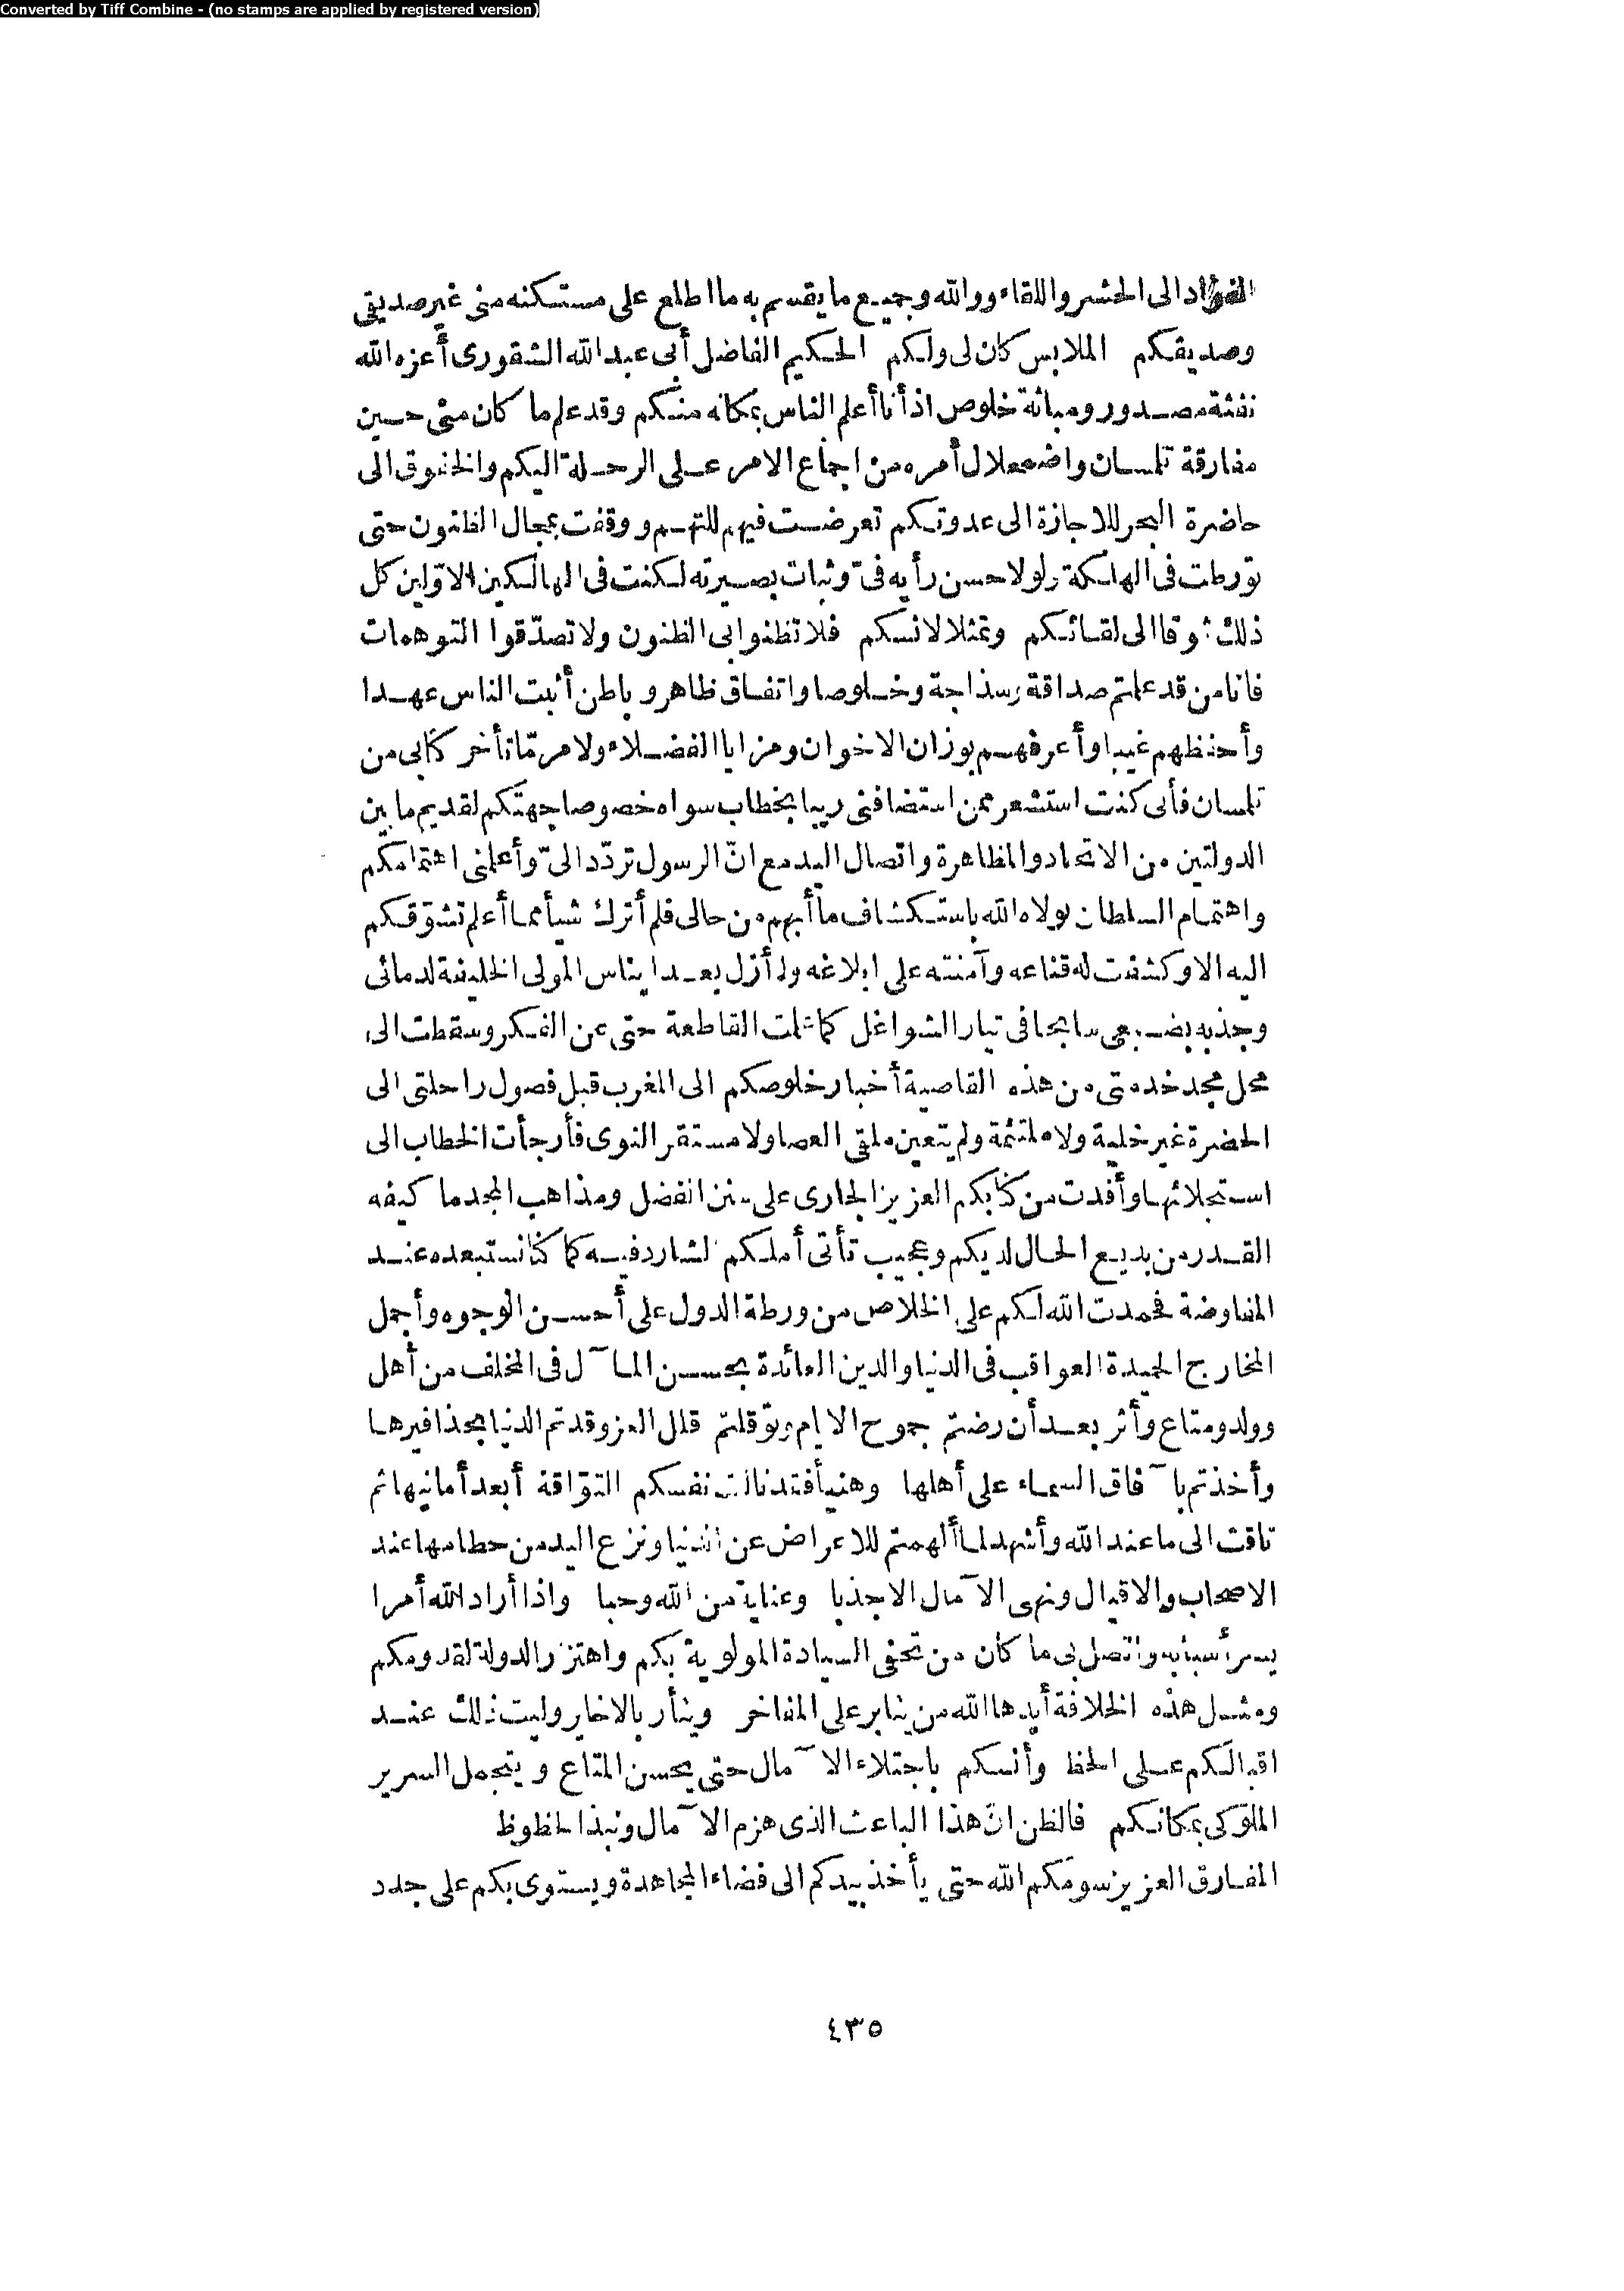 Converted by Tiff Combine - (no stamps are applied by registered version)
الفؤاد الى الحشر واللقاء ووالله وجميع ما يقسم به ما اطلع على مستكنه منى غير صديقى
وصديقكم الملابس كان لى ولكم الحكيم الفاضل أبى عبد الله الشقورى أعزه الله
نفثة مصدور ومباثة خلوص اذ أنا أعلم الناس بمكانه منكم وقد علم ما كان منى حين
مفارقة تلمسان واضمعلال أمره من اجماع الامر على الرحلة اليكم والخفوق الى
حاضرة البحر للاجازة الى عدوتكم تعرضت فيهم للتهم ووقفت بمجال الظنون حتى
تورطت فى الهلكة ولولا حسن رأيه فىّ وثبات بصيرته لكنت فى الهالكين الاوّلين كل
ذلك شوقا الى لقائكم وتمثلا لانسكم فلا تظنوا بى الظنون ولا تصدّقوا التوهمات
فانا من قد علمتم صداقة وسذاجة وخلوصا واتفاق ظاهر وباطن أثبت الناس عهدا
وأحفظهم غيبا وأعرفهم بوزان الاخوان ومزايا الفضلاء ولامر مّا تأخر كتابى من
تلمسان فأنى كنت استشعر ممن استضافنى ريبا بخطاب سواه خصوصا جهتكم لقديم ما بين
الدولتين من الاتحاد والمظاهرة واتصال اليد مع انّ الرسول تردّد الىّ وأعلمنى اهتمامكم
واهتمام السلطان تولاه الله باستكشاف ما أبهم من حالى فلم أترك شيأ مما أعلم تشوّقكم
اليه الا وكشفت له قناعه وآمنته على ابلاغه ولم أزل بعد ايناس المولى الخليفة لدمائى
وجذبه بضبعى سابحا فى تيار الشواغل كما علمت القاطعة حتى عن الفكر وسقطت الى
محل مجد خدمتى من هذه القاصية أخبار خلوصكم الى المغرب قبل فصول راحلتى الى
الحضرة غير خلية ولا ملتئمة ولم يتعين ملقى العصا ولا مستقر النوى فأرجأت الخطاب الى
استجلائها وأفدت من كتابكم العزيز الجارى على سنن الفضل ومذاهب المجد ما كيفه
القدر من بديع الحال لديكم وعجيب تأتى أملكم الشارد فيه كما كنا نستبعده عند
المفاوضة فحمدت الله لكم على الخلاص من ورطة الدول على أحسن الوجوه وأجمل
المخارج الحميدة العواقب فى الدنيا والدين العائدة بحسن المآل فى المخلف من أهل
وولد ومتاع وأثر بعد أن رضتم جموح الايام وتوقلتم قلل العز وقدتم الدنيا بحذافيرها
وأخذتم بآفاق السماء على أهلها وهنيأ فقد نالت نفسكم التوّاقة أبعد أمانيها ثم
تاقت الى ما عند الله وأشهد لما ألهمتم للاعراض عن الدنيا ونزع اليد من حطامها عند
الاصحاب والاقبال ونهى الآمال الا جذبا وعناية من الله وحبا واذا أراد الله أمرا
يسر أسبابه واتصل بى ما كان من تحفى السيادة المولوية بكم واهتزار الدولة لقدومكم
ومثل هذه الخلافة أيدها الله من يثابر على المفاخر ويستأثر بالاخاير وليت ذلك عند
اقبالكم على الحظ وأنسكم باجتلاء الآمال حتى يحسن المتاع ويتجمل السرير
الملوكى بمكانكم فالظن انّ هذا الباعث الذى هزم الآمال ونبذ الحظوظ
المفارق العزيز سومكم الله حتى يأخذ بيدكم الى فضاء المجاهدة ويستوى بكم على جدد
٤٣٥